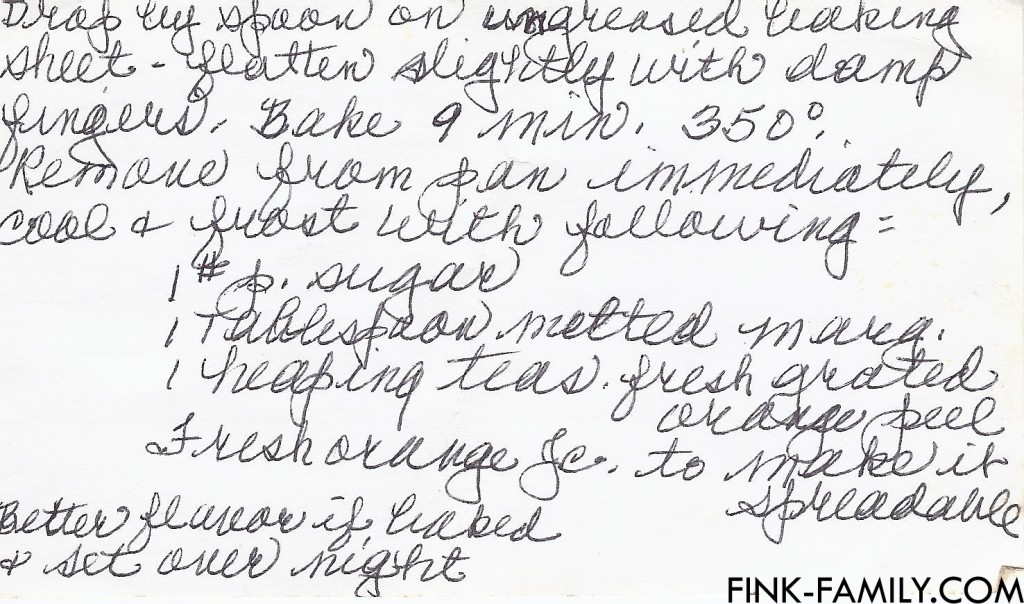 Drop by spoon on ungreased baking
sheet - flatten slightly with damp
fingers. Bake 9 min. 350°.
Remove from pan immediately,
cool & frost with following =
1 # p. sugar
1 Tablespoon melted marg.
1 heaping teas. fresh grated
orange peel
Fresh orange Jc. to make it
spreadable
Better flavor if baked
& set over night
FINK-FAMILY.COM